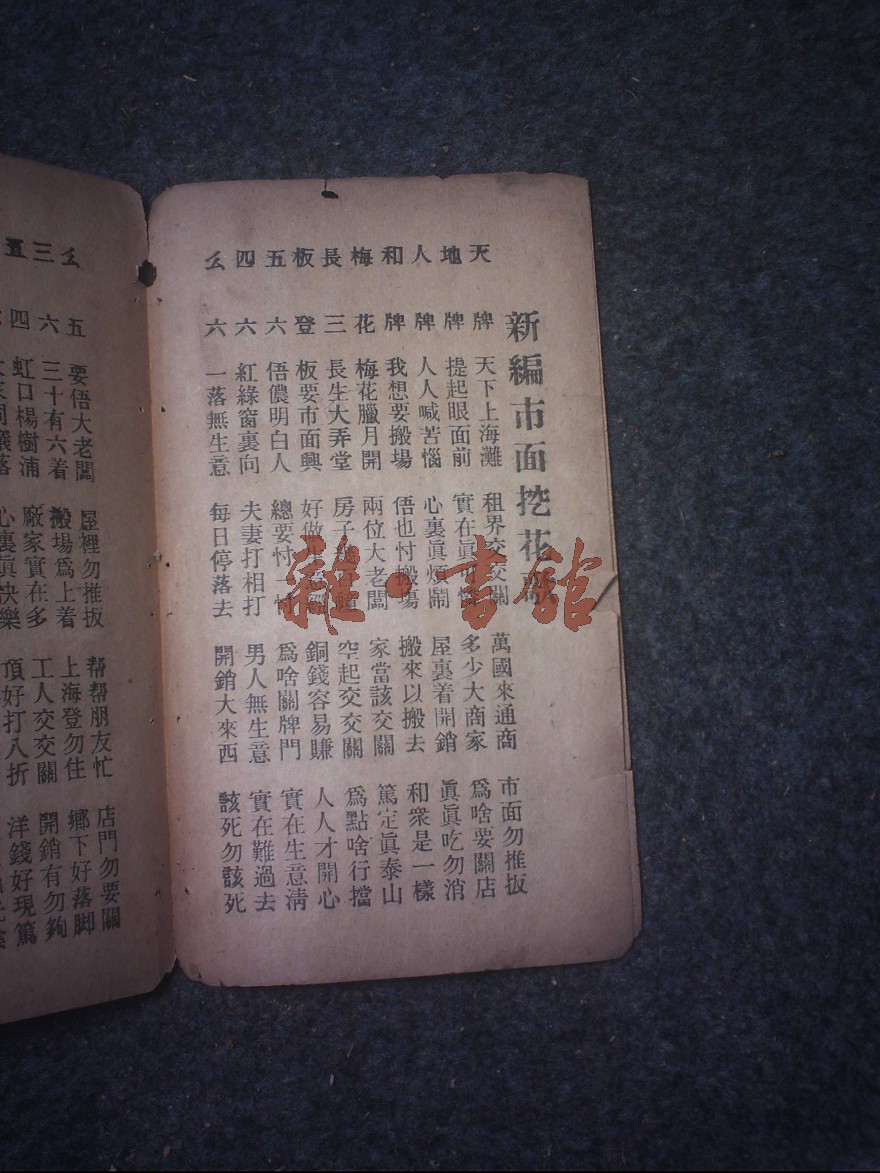 新編市面挖花歌
天牌 天下上海灘 租界交交關 萬國來通商 市面勿推扳
地牌 提起眼面前 實在眞可憐 多少大商家 爲啥要關店
人牌 人人喊苦惱 心裏眞煩鬧 屋裏着開銷 眞眞吃勿消
和牌 我想要搬場 悟也忖搬塲 搬來以搬去 和衆是一樣
梅花 梅花臘月開 兩位大老闆 家當該交關 篤定眞泰山
長三 長生大弄堂 房子 空起交交關 爲點啥行擋
板登 板要市面興 好做 銅錢容易賺 人人才開心
五六 悟儂明白人 總要忖一忖 爲啥關牌門 實在生意淸
四六 紅綠窗裏向 夫妻打相打 男人無生意 實在難過去
幺六 一落無生意 每日停落去 開銷大來西 該死勿該死
幺五 要悟大老闆 屋裡勿推扳 帮帮朋友忙 店門勿要關
三六 三十有六着 搬場爲上着 上海登勿住 鄉下好落脚
五四 虹口楊樹浦 廠家實在多 工人交交關 開銷有勿夠
心裏眞快樂 頂好打八折 洋錢好現篤
雜·書館